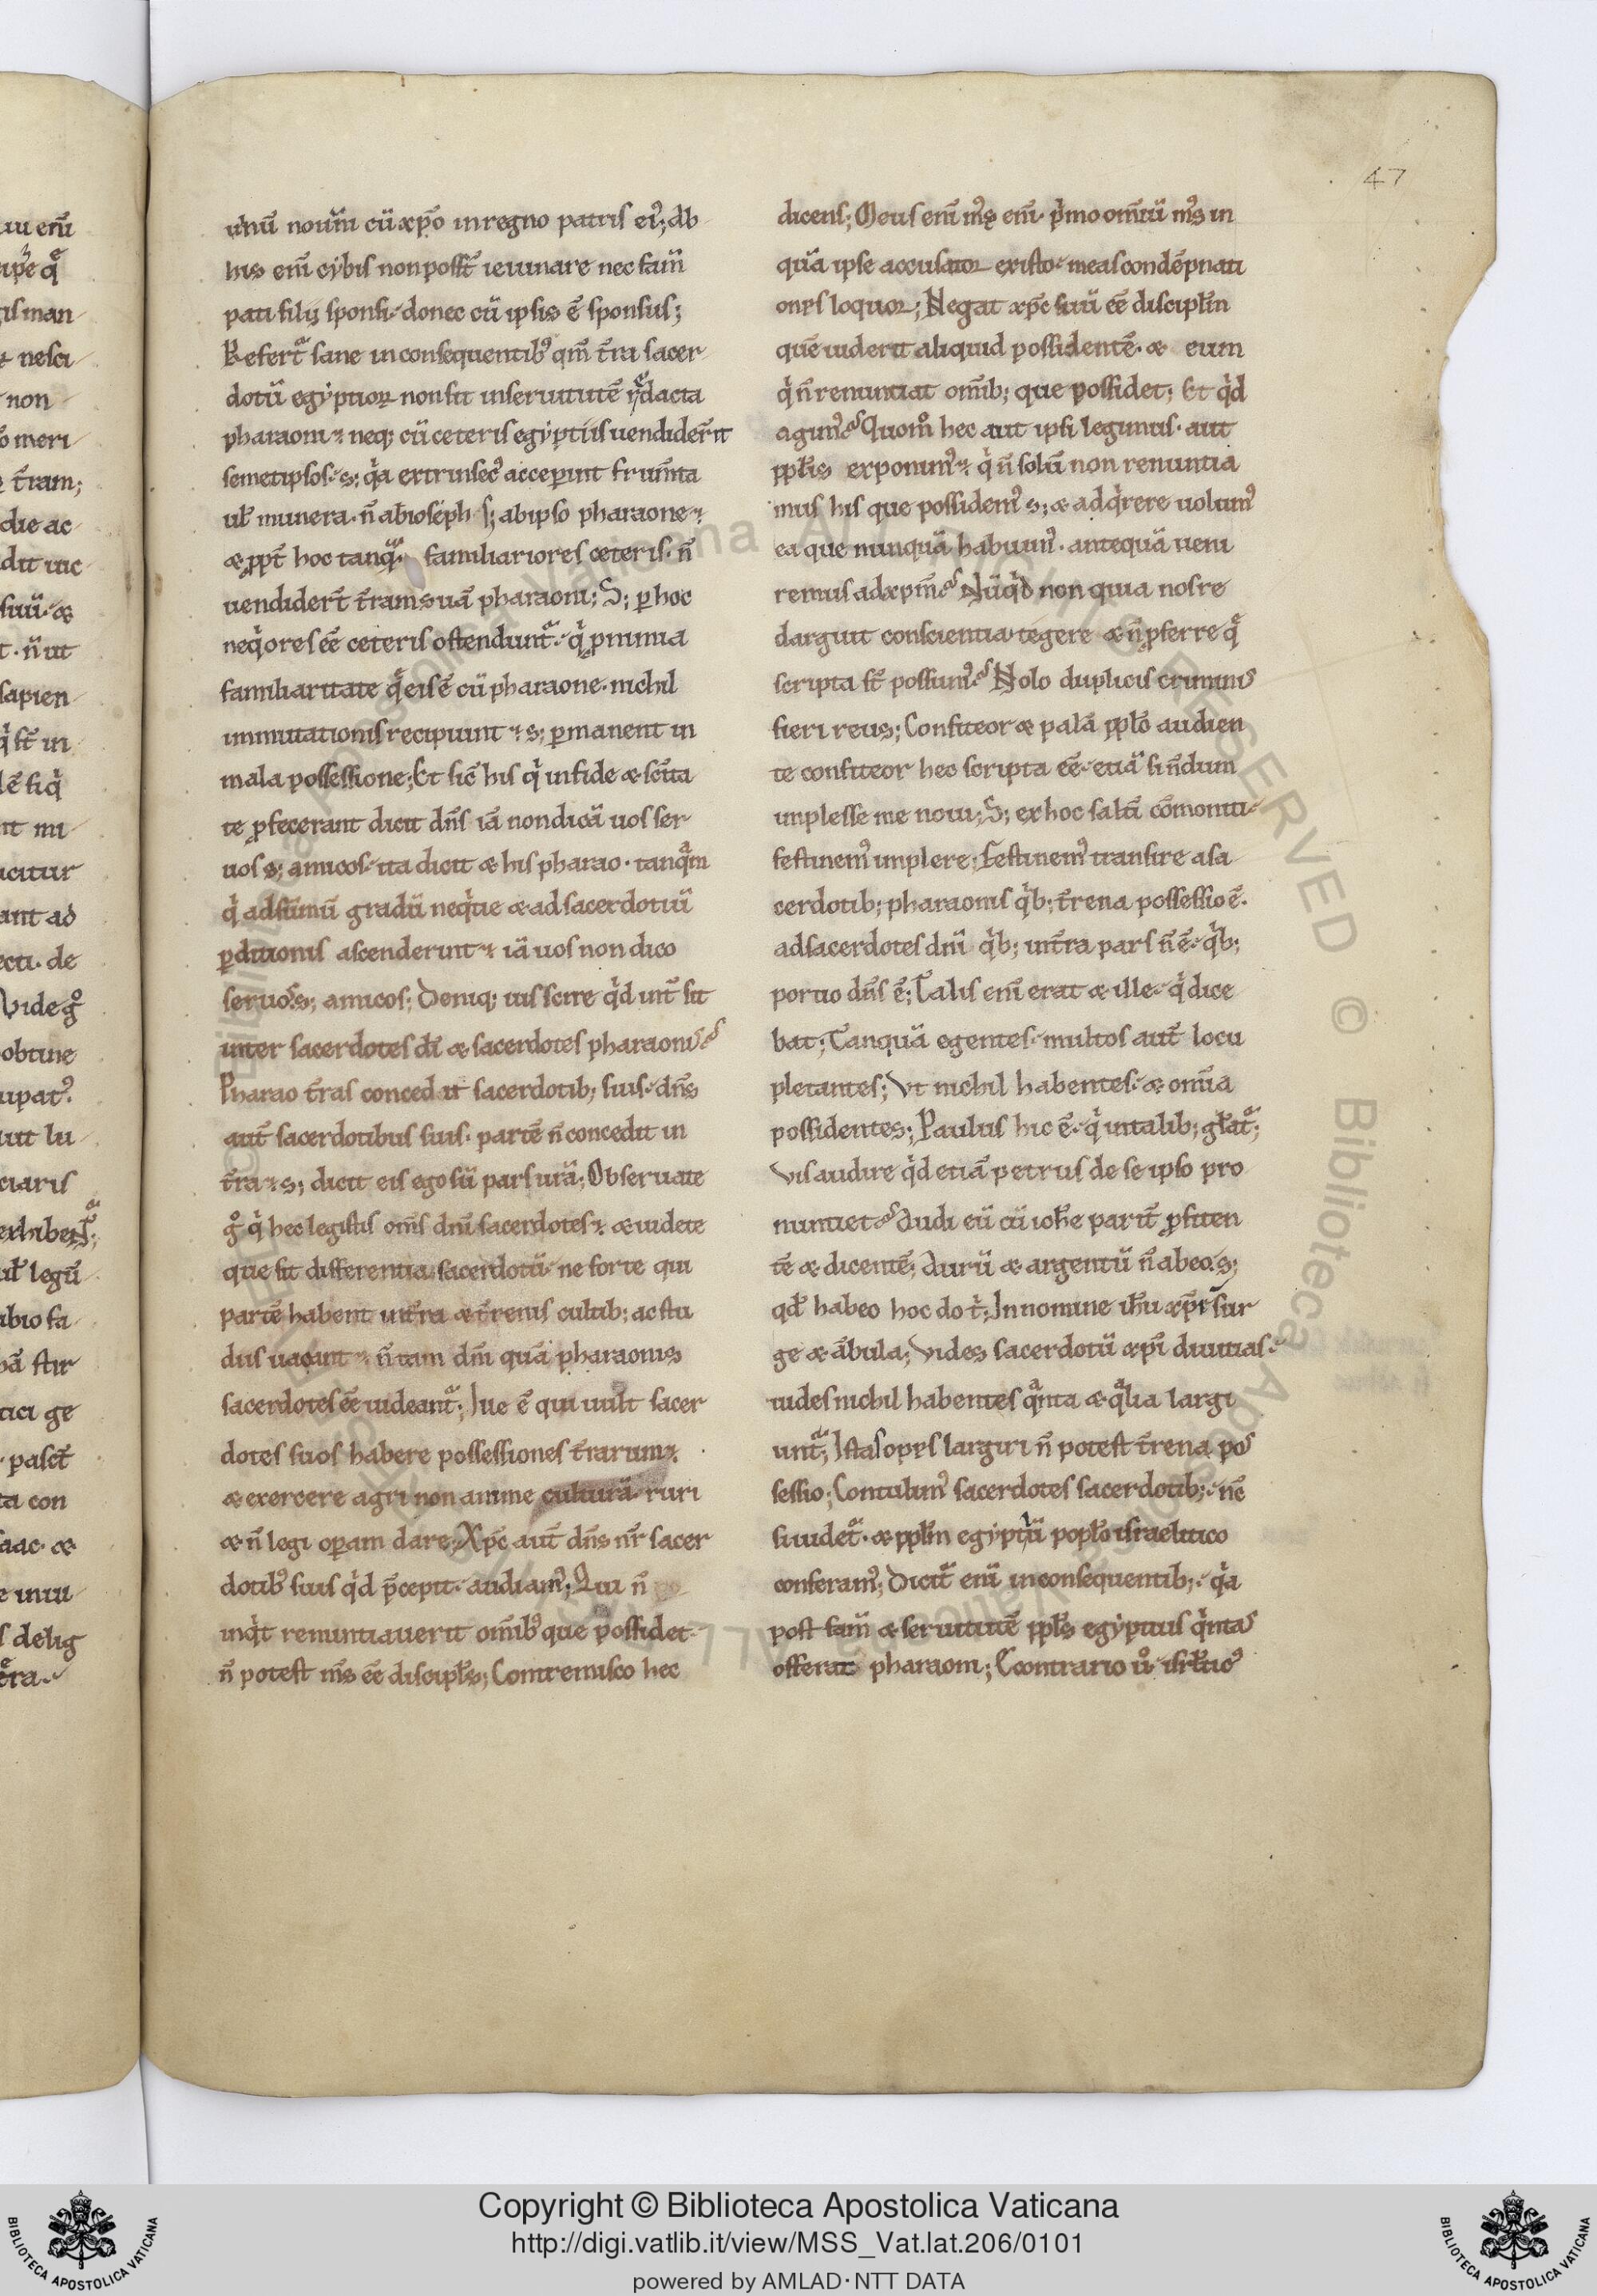 47
uinũ nouũ cũ xp̃o in regno patris ei᷒; ab
his enĩ cybis non poss̃t ieiunare nec famẽ
pati filij sponsi donec cũ ipsis ẽ sponsus;
Refert̃ sane in consequentib᷒ qm̃ t̃ra sacer
dotũ egyptioꝝ non sit in seruitutẽ redacta
pharaoni neq; cũ ceteris egyptiis uendider̃it
semetipsos s; q̓a extrinsec᷒ acceper̃int frum̃ta
ul̃ munera. ñ ab ioseph s; ab ipso pharaone
& ꝓpt̃ hoc tanqᷓ familiariores ceteris. ñ
uendider̃t t̃ram suã pharaoni; S; ꝑ hoc
neq̓ores eẽ ceteris ostendunt̃ q̓ ꝓ nimia
familiaritate q̃ eis ẽ cũ pharaone. nichil
inmutationis recipiunt s; ꝑmanent in
mala possessione; Et sic̃ his q̓ in fide & sc̃ita
te ꝓfecerant dicit dñs iã non dicã uos ser
uos s; amicos ita dicit & his pharao. tanqᷓm
q̓ ad sum̃ũ gradũ neq̓tie & ad sacerdotiũ
ꝑditionis ascenderint iã uos non dico
seruos s; amicos; Deniq; uis scire q̓d int̃ sit
inter sacerdotes dĩ & sacerdotes pharaonis
Pharao t̃ras concedit sacerdotib; suis dñs
aut̃ sacerdotibus suis. partẽ ñ concedit in
t̃ra s; dicit eis ego sũ pars ur̃a; Obseruate
g̊ q̓ hec legistis om̃s dñi sacerdotes & uidete
que sit differentia sacerdotũ ne forte qui
partẽ habent in t̃ra & t̃renis cultib; ac stu
diis uacant ñ tam dñi quã pharaonis
sacerdotes eẽ uideant̃; Ille ẽ qui uult sacer
dotes suos habere possessiones t̃rarum
& exercere agri non anime culturã ruri
& ñ legi oꝑam dare; Xp̃c aut̃ dñs nr̃ sacer
dotib᷒ suis q̓d p̃cepit audiam᷒; Qui ñ
inq̓t renuntiauerit om̃ib᷒ que possidet
ñ potest m̃s eẽ discipl̃s; Contremisco hec
dicens; Meus enĩ m̃s enĩ. p̓mo om̃iũ m̃s in
quã ipse accusator existo meas condẽpnati
ones loquor; Negat xp̃c suũ eẽ discipl̃m
quẽ uiderit aliquid possidentẽ. & eum
q̓ ñ renuntiat om̃ib; que possidet; Et q̓d
agim᷒ Quom̊ hec aut ipsi legimus. aut
ppl̃is exponim᷒ q̓ ñ solũ non renuntia
mus his que possidem᷒ s; & adq̓rere uolum᷒
ea que nunquã habuim᷒. antequã ueni
remus ad xp̃m Nũq̓d non quia nos re
darguit conscientia tegere & ñ ꝓferre q̃
scripta st̃ possum᷒ Nolo duplicis criminis
fieri reus; Confiteor & palã ppl̃o audien
te confiteor hec scripta eẽ etiã si ñdum
inplesse me noui; S; ex hoc saltĩ com̃oniti
festinem᷒ inplere; Festinem᷒ transire a sa
cerdotib; pharaonis q̓b; t̃rena possessio ẽ.
ad sacerdotes dñi q̓b; in t̃ra pars ñ ẽ q̓b;
portio dñs ẽ; Talis enĩ erat & ille q̓ dice
bat; Tanquã egentes multos aut̃ locu
pletantes; Vt nichil habentes & om̃ia
possidentes; Paulus hic ẽ q̓ in talib; gl̃at̃;
Vis audire q̓d etiã petrus de se ipso pro
nuntiet Audi eũ cũ ioh̃e parit̃ ꝓfiten
tẽ & dicentẽ; Aurũ & argentũ ñ abeo s;
qd̃ habeo hoc do t̓; In nomine ih̃u xp̃i sur
ge & ãbula; Vides sacerdotũ xp̃i diuitias
uides nichil habentes qᷓnta & qᷓlia largi
unt̃; Istas opes largiri ñ potest t̃rena pos
sessio; Contulim᷒ sacerdotes sacerdotib; nc̃
si uidet̃. & ppl̃m egyptiũ popl̃o israelitico
conferam᷒; Dicit̃ enĩ in consequentib; q̓a
post famẽ & seruitutẽ ppl̃s egyptius q̓ntas
offerat pharaoni; E contrario ů isrl̃itic᷒
Copyright © Biblioteca Apostolica Vaticana
http://digi.vatlib.it/view/MSS_Vat.lat.206/0101
powered by AMLAD·NTT DATA
BIBLIOTECA APOSTOLICA VATICANA
BIBLIOTECA APOSTOLICA VATICANA